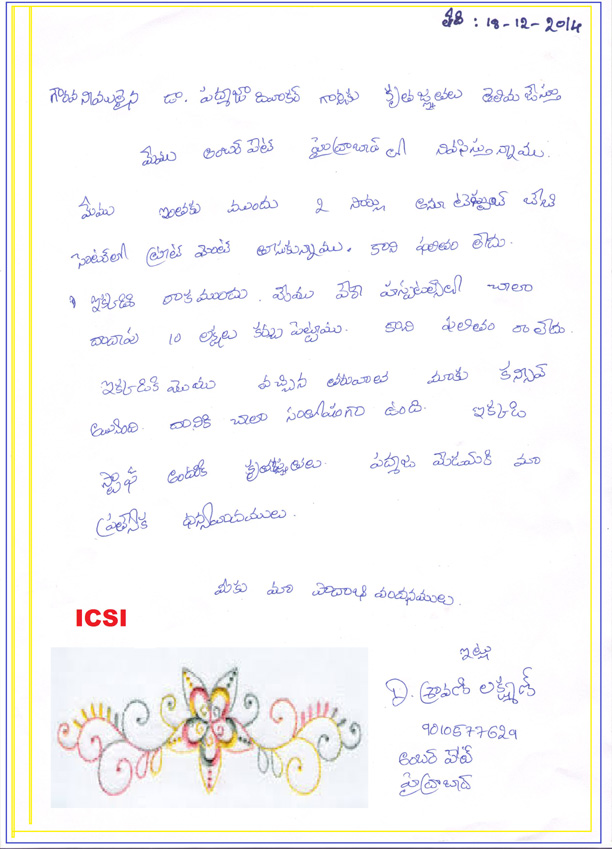 తేది : 18-12-2014
గౌరవనీయులైన డా. పద్మజా దివాకర్ గార్కి కృతజ్ఞతలు తెలియచేస్తూ
మేము అంబర్ పేట్ హైద్రాబాద్ లో నివసిస్తున్నాము.
మేము ఇంతకు ముందు 2 సార్లు టెస్ట్యూబ్ బేబి
సెంటర్‌లో ట్రీట్ మెంట్ తీసుకున్నాము. కాని ఫలితం లేదు.
ఇక్కడికి రాకముందు. మేము వేరే హస్పటల్స్‌లో చాలా
దాదాపు 10 లక్షలు ఖర్చు పెట్టాము. కాని ఫలితం రాలేదు.
ఇక్కడికి మేము వచ్చిన తరువాత మాకు కన్సీవ్
అయింది. దానికి చాలా సంతోషంగా ఉంది. ఇక్కడి
స్టాఫ్ అందరికి కృతజ్ఞతలు. పద్మాజ మేడమ్‌కి మా
ప్రత్యేక ధన్యవాదములు.
మీకు మా పాదాభి వందనములు.
ICSI
ఇట్లు
D. శ్రావణి లక్ష్మణ్
9010577629
అంబర్ పేట్
హైద్రాబాద్